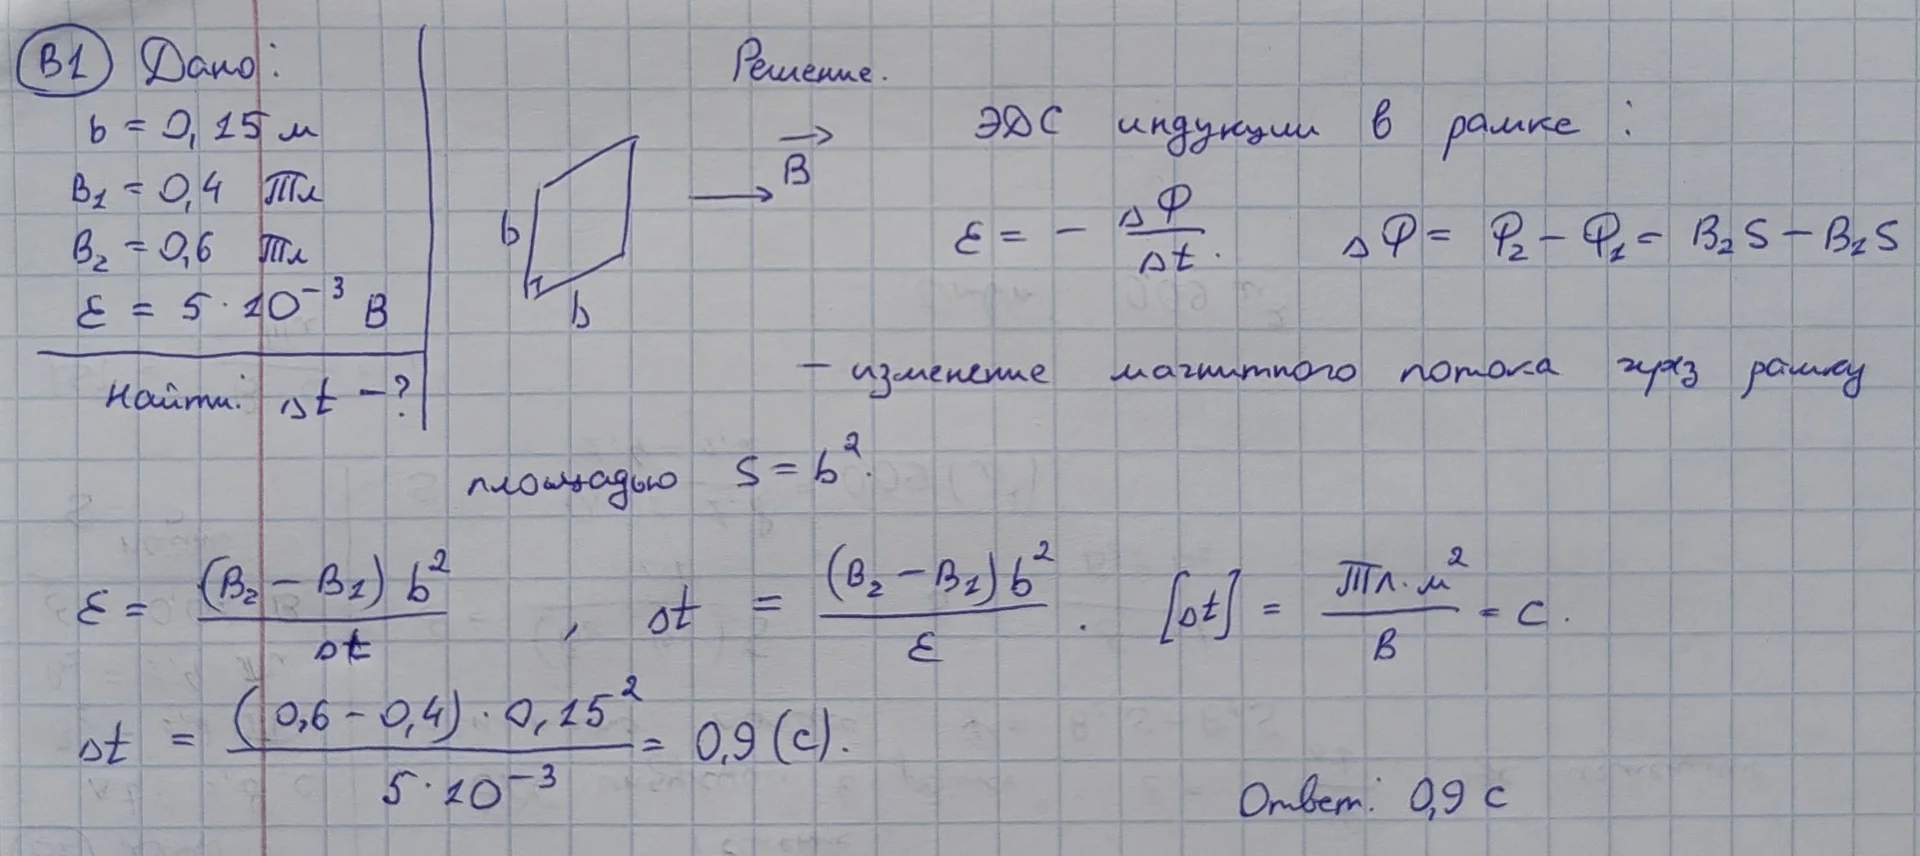 В1 Дано:
b = 0,15 м
B₁ = 0,4 Тл
B₂ = 0,6 Тл
ℰ = 5·10⁻³ В
Найти: Δt - ?
Решение.
b
b
B⃗
ЭДС индукции в рамке:
ℰ = - ΔΦ/Δt. ΔΦ = Φ₂ - Φ₁ = B₂S - B₁S
- изменение магнитного потока чрез рамку
площадью S = b².
ℰ = (B₂ - B₁) b²/Δt , Δt = (B₂ - B₁) b²/ℰ . [Δt] = Тл·м²/В = с.
Δt = (0,6 - 0,4)·0,15²/5·10⁻³ = 0,9 (с).
Ответ: 0,9 с